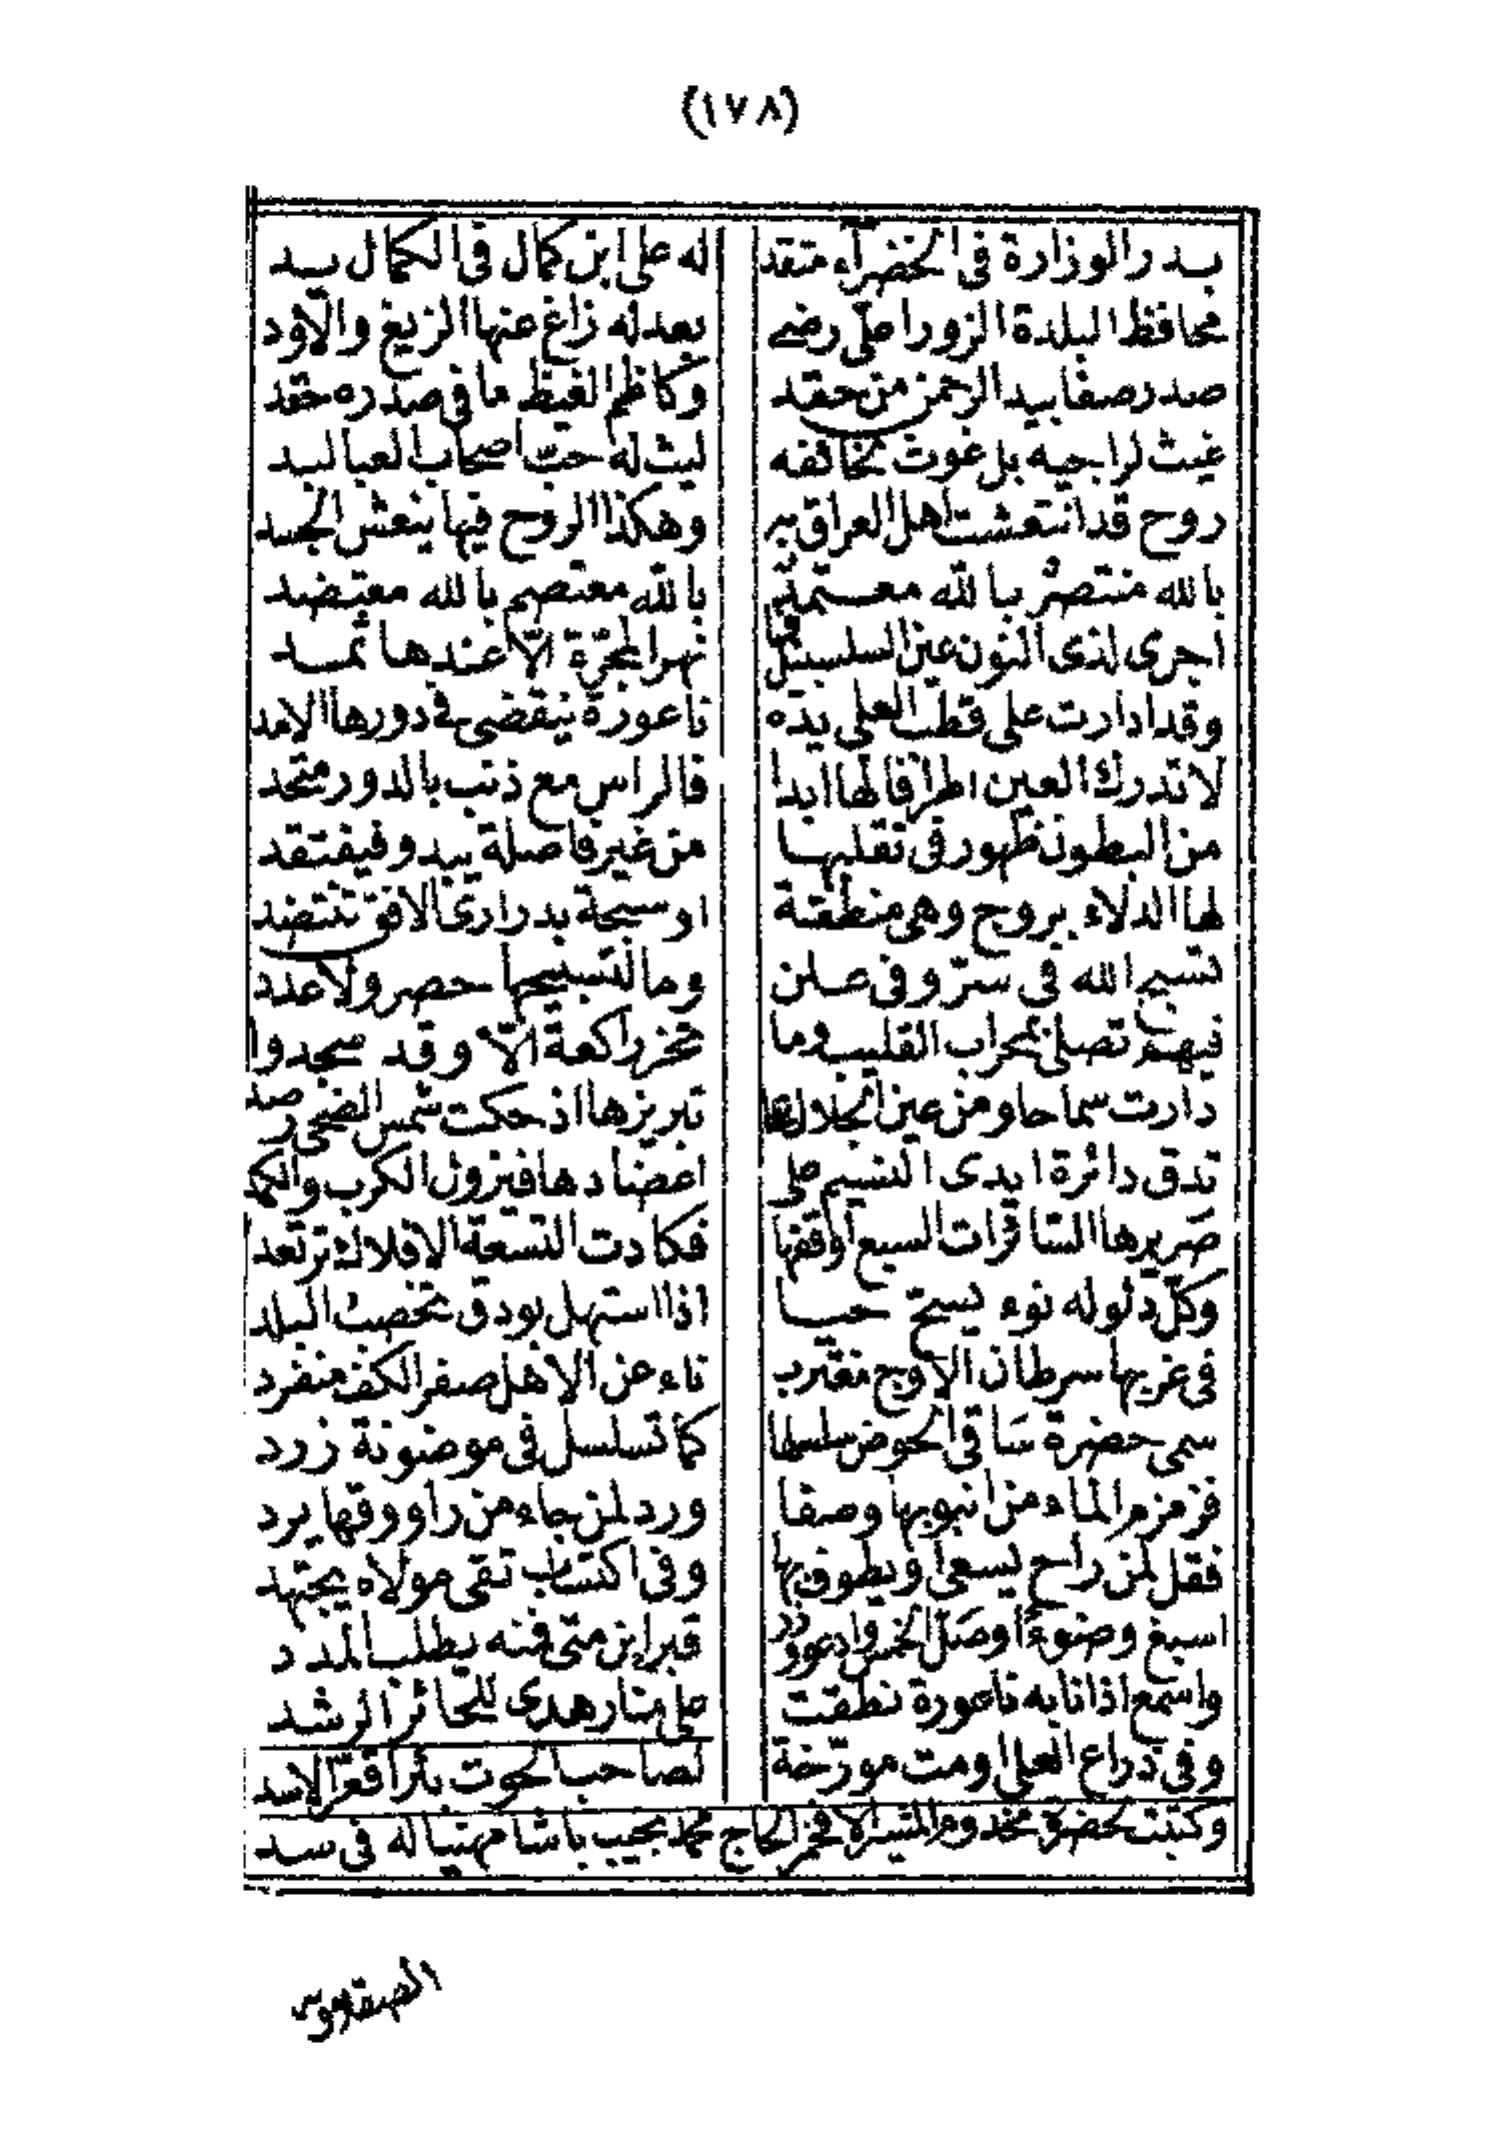 (١٧٨)
بدر الوزارة فى الخضرآء متقد له على ابن كمال فى الكمال يد
محافظ البلدة الزورا على رضى بعدله زاغ عنها الزيغ والأود
صدر صفا بيد الرحمن من حقد وكاظم الغيظ ما فى صدره حقد
غيث لراجيه بل غوث لخائفه ليث له حبّ اصحاب العبا لبد
روح قد انتعشت اهل العراق به وهكذا الروح فيها ينعش الجسد
بالله منتصر بالله معتمد بالله معتصم بالله معتضد
اجرى لذى النون عين السلسبيل نهر المجرّة الّا عندها ثمد
وقد ادارت على قطب العلى يده ناعورة ينقضى فى دورها الامد
لا تدرك العين اطرافا لها ابدا فالراس مع ذنب بالدور متحد
من البطون ظهور فى تقلبها من غير فاصلة يبدو فيفتقد
لها الدلاء بروج وهى منطقة او سبحة بدرارى الافق تنتضد
تسبح الله فى سرّ وفى علن وما لتسبيحها حصر ولا عدد
فيهم تصلى بمحراب القليب وما تخر راكعة الّا وقد سجدوا
دارت سما حاومن عين الجلال لها تبريزها اذ حكت شمس الضحى رصد
تدق دائرة ايدى النسيم على اعضادها فيزول الكرب والكمد
صريرها السائرات السبع اوقفها فكادت التسعة الافلاك ترتعد
وكلّ دلو له نوء يسحّ حيا اذا استهل بودق تخصب البلد
فى غربها سرطان الاوج مغترب ناء عن الاهل صفر الكف منفرد
سمى حضرة ساقى الحوض سلسلها كما تسلسل فى موضونة زرد
فزمزم الماء من انبوبها وصفا ورد لمن جاء من راووقها يرد
فقل لمن راح يسعى ويطوف بها وفى اكتساب تقى مولاه يجتهد
اسبغ وضوءا وصل الخمس وادعو وزر قبر ابن متى فمنه يطلب المدد
واسمع اذا نابه ناعورة نطقت على منار هدى للحائر الرشد
وفى ذراع العلى اومت مورّخة لصاحب الحوت بئرا قعرّ الاسد
وكتبت لحضرة مخدوم المشير الافخم الحاج محمد نجيب باشا مهنيا له فى سد
الصقلاويه